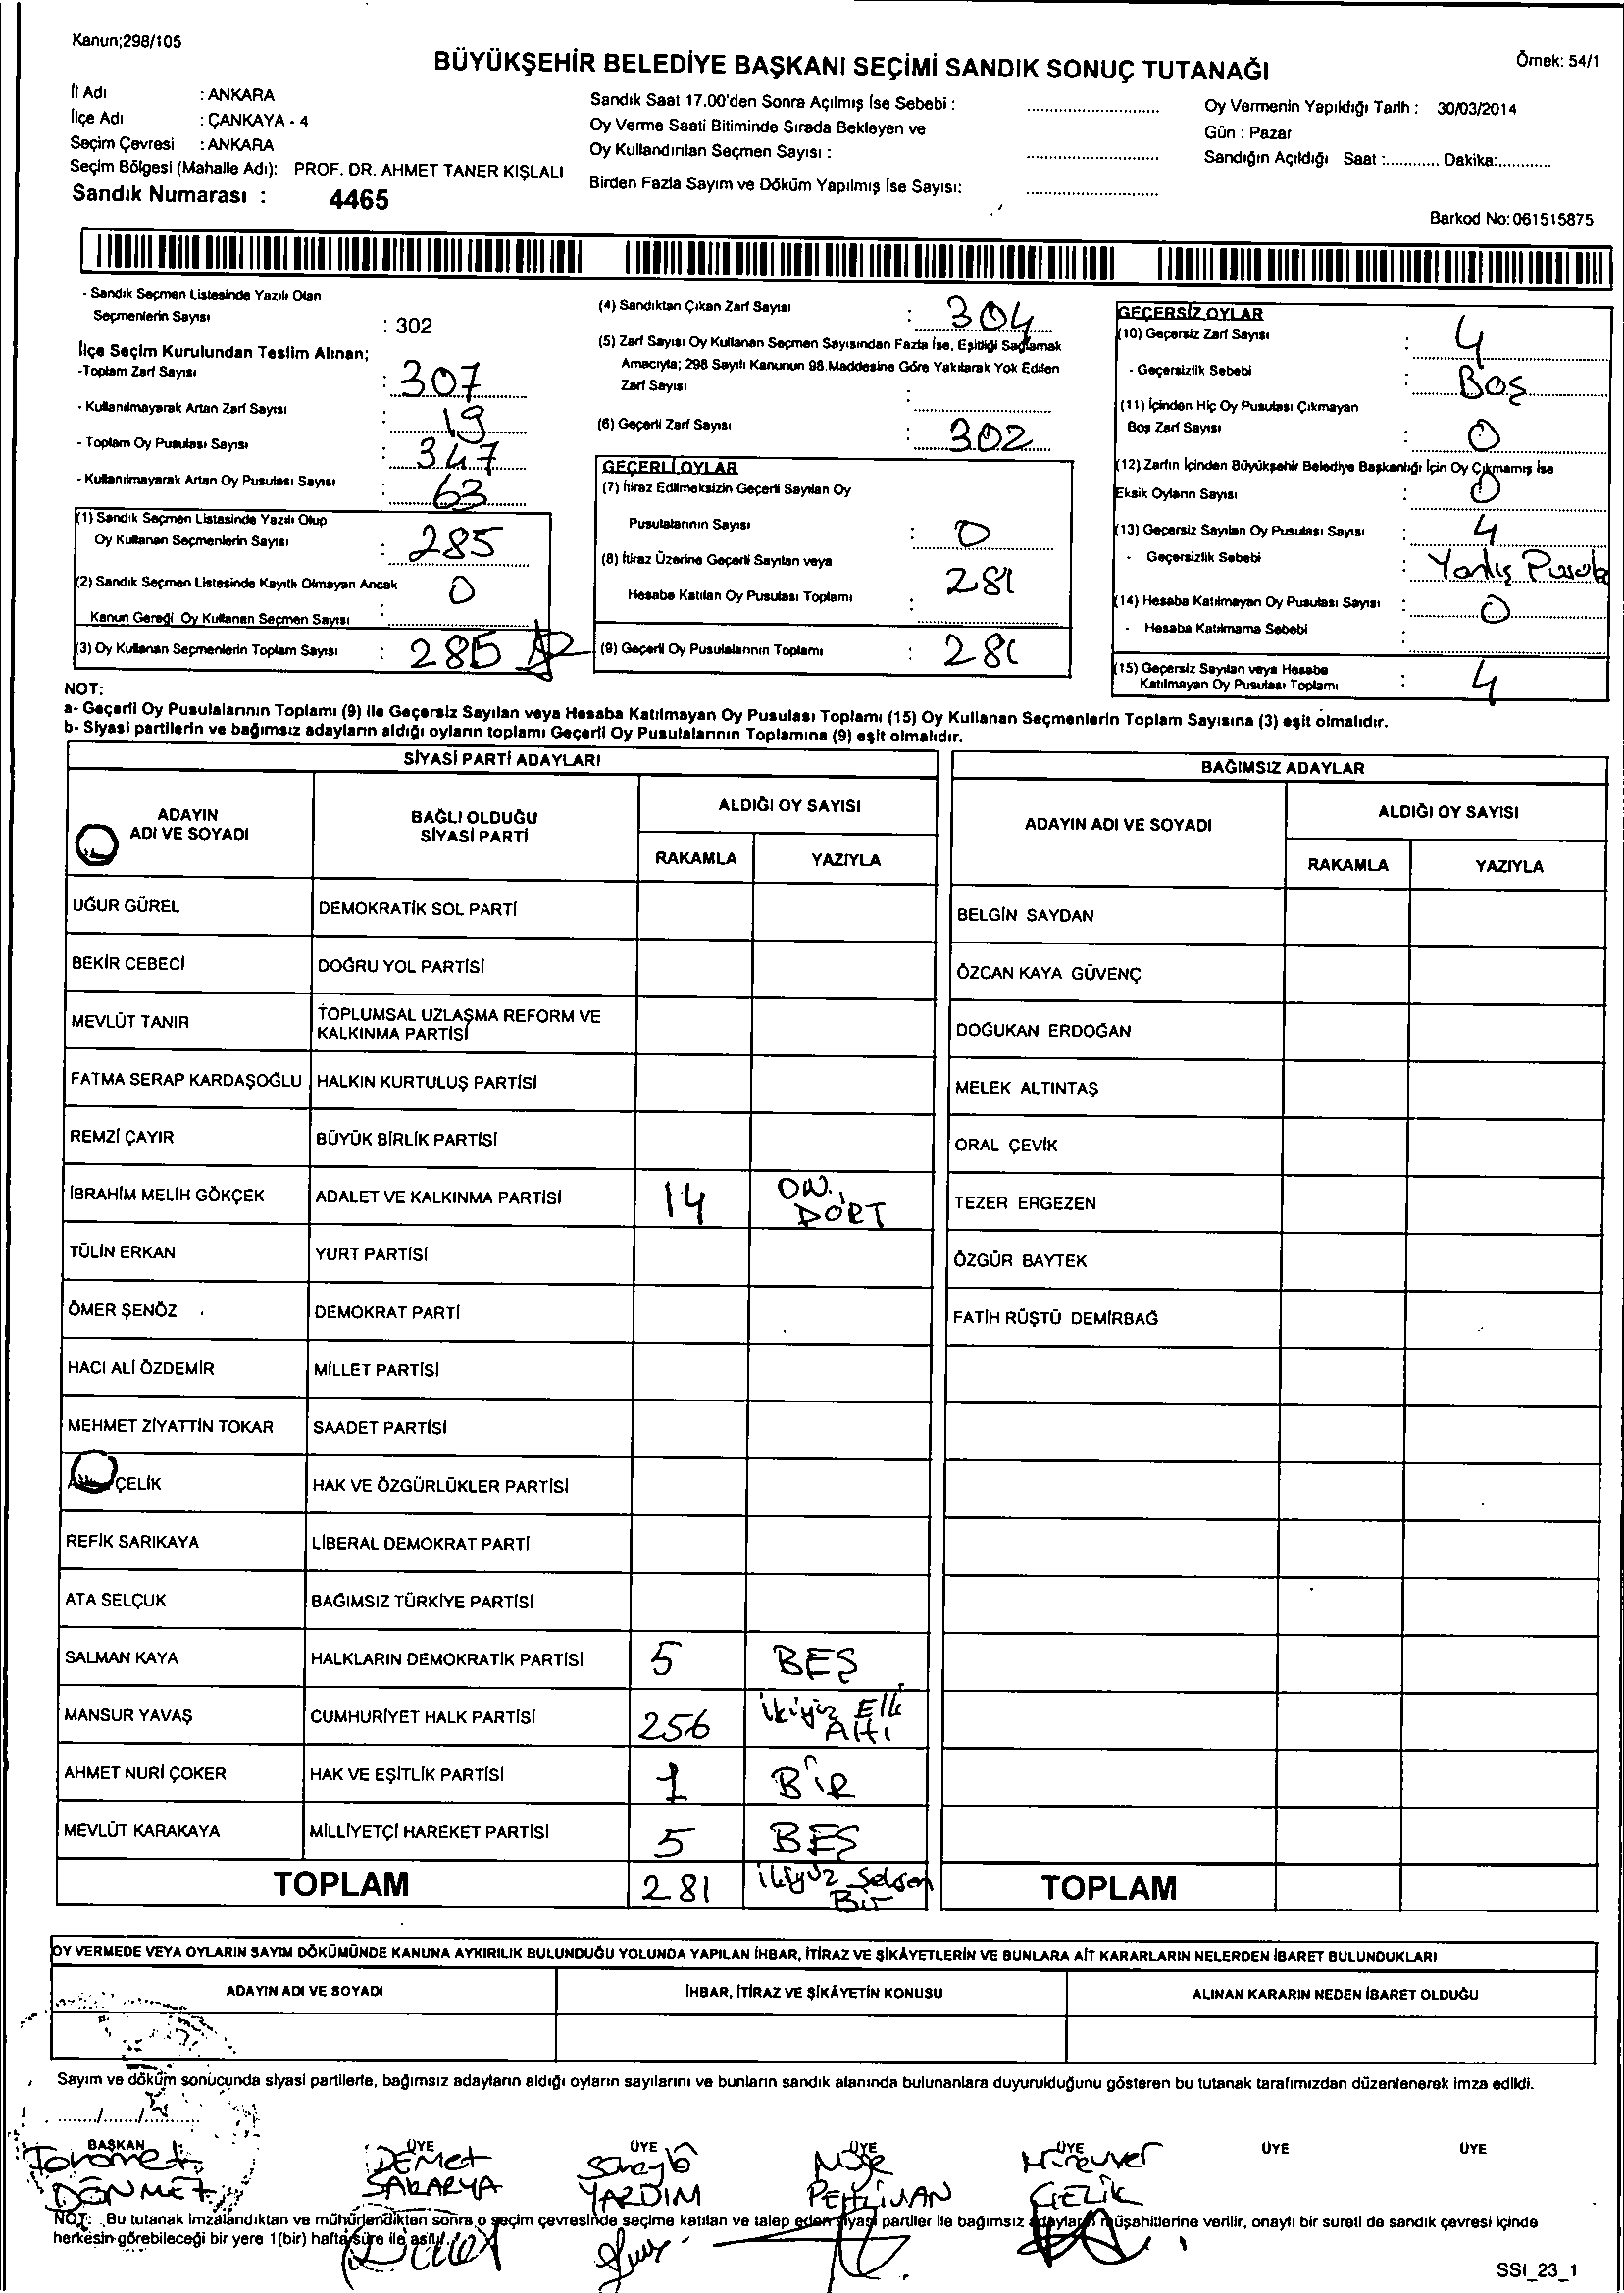 Kanun;298/105
BÜYÜKŞEHİR BELEDİYE BAŞKANI SEÇİMİ SANDIK SONUÇ TUTANAĞI
Örnek: 54/1
İl Adı : ANKARA
İlçe Adı : ÇANKAYA - 4
Seçim Çevresi : ANKARA
Seçim Bölgesi (Mahalle Adı): PROF. DR. AHMET TANER KIŞLALI
Sandık Numarası : 4465
Sandık Saat 17.00'den Sonra Açılmış İse Sebebi :
Oy Verme Saati Bitiminde Sırada Bekleyen ve
Oy Kullandırılan Seçmen Sayısı :
Birden Fazla Sayım ve Döküm Yapılmış İse Sayısı:
Oy Vermenin Yapıldığı Tarih : 30/03/2014
Gün : Pazar
Sandığın Açıldığı Saat :............ Dakika:............
Barkod No: 061515875
- Sandık Seçmen Listesinde Yazılı Olan
Seçmenlerin Sayısı : 302
İlçe Seçim Kurulundan Teslim Alınan;
-Toplam Zarf Sayısı : 307
- Kullanılmayarak Artan Zarf Sayısı : 19
- Toplam Oy Pusulası Sayısı : 347
- Kullanılmayarak Artan Oy Pusulası Sayısı : 63
(1) Sandık Seçmen Listesinde Yazılı Olup
Oy Kullanan Seçmenlerin Sayısı : 285
(2) Sandık Seçmen Listesinde Kayıtlı Olmayan Ancak
Kanun Gereği Oy Kullanan Seçmen Sayısı : 0
(3) Oy Kullanan Seçmenlerin Toplam Sayısı : 285
(4) Sandıktan Çıkan Zarf Sayısı : 304
(5) Zarf Sayısı Oy Kullanan Seçmen Sayısından Fazla İse, Eşitliği Sağlamak
Amacıyla; 298 Sayılı Kanunun 98.Maddesine Göre Yakılarak Yok Edilen
Zarf Sayısı :
(6) Geçerli Zarf Sayısı : 302
GEÇERLİ OYLAR
(7) İtiraz Edilmeksizin Geçerli Sayılan Oy
Pusulalarının Sayısı : 0
(8) İtiraz Üzerine Geçerli Sayılan veya
Hesaba Katılan Oy Pusulası Toplamı : 281
(9) Geçerli Oy Pusulalarının Toplamı : 281
GEÇERSİZ OYLAR
(10) Geçersiz Zarf Sayısı : 4
- Geçersizlik Sebebi : Boş
(11) İçinden Hiç Oy Pusulası Çıkmayan
Boş Zarf Sayısı : 0
(12).Zarfın İçinden Büyükşehir Belediye Başkanlığı İçin Oy Çıkmamış İse
Eksik Oyların Sayısı : 0
(13) Geçersiz Sayılan Oy Pusulası Sayısı : 4
- Geçersizlik Sebebi : Yanlış Pusula
(14) Hesaba Katılmayan Oy Pusulası Sayısı : 0
- Hesaba Katılmama Sebebi :
(15) Geçersiz Sayılan veya Hesaba
Katılmayan Oy Pusulası Toplamı : 4
NOT:
a- Geçerli Oy Pusulalarının Toplamı (9) ile Geçersiz Sayılan veya Hesaba Katılmayan Oy Pusulası Toplamı (15) Oy Kullanan Seçmenlerin Toplam Sayısına (3) eşit olmalıdır.
b- Siyasi partilerin ve bağımsız adayların aldığı oyların toplamı Geçerli Oy Pusulalarının Toplamına (9) eşit olmalıdır.
SİYASİ PARTİ ADAYLARI
ADAYIN ADI VE SOYADI
BAĞLI OLDUĞU SİYASİ PARTİ
ALDIĞI OY SAYISI
RAKAMLA YAZIYLA
UĞUR GÜREL DEMOKRATİK SOL PARTİ
BEKİR CEBECİ DOĞRU YOL PARTİSİ
MEVLÜT TANIR TOPLUMSAL UZLAŞMA REFORM VE KALKINMA PARTİSİ
FATMA SERAP KARDAŞOĞLU HALKIN KURTULUŞ PARTİSİ
REMZİ ÇAYIR BÜYÜK BİRLİK PARTİSİ
İBRAHİM MELİH GÖKÇEK ADALET VE KALKINMA PARTİSİ 14 ON DÖRT
TÜLİN ERKAN YURT PARTİSİ
ÖMER ŞENÖZ DEMOKRAT PARTİ
HACI ALİ ÖZDEMİR MİLLET PARTİSİ
MEHMET ZİYATTİN TOKAR SAADET PARTİSİ
ÇELİK HAK VE ÖZGÜRLÜKLER PARTİSİ
REFİK SARIKAYA LİBERAL DEMOKRAT PARTİ
ATA SELÇUK BAĞIMSIZ TÜRKİYE PARTİSİ
SALMAN KAYA HALKLARIN DEMOKRATİK PARTİSİ 5 BEŞ
MANSUR YAVAŞ CUMHURİYET HALK PARTİSİ 256 ikiyüz Elli Altı
AHMET NURİ ÇOKER HAK VE EŞİTLİK PARTİSİ 1 BİR
MEVLÜT KARAKAYA MİLLİYETÇİ HAREKET PARTİSİ 5 BEŞ
TOPLAM 281 ikiyüz Seksen Bir
BAĞIMSIZ ADAYLAR
ADAYIN ADI VE SOYADI
ALDIĞI OY SAYISI
RAKAMLA YAZIYLA
BELGİN SAYDAN
ÖZCAN KAYA GÜVENÇ
DOĞUKAN ERDOĞAN
MELEK ALTINTAŞ
ORAL ÇEVİK
TEZER ERGEZEN
ÖZGÜR BAYTEK
FATİH RÜŞTÜ DEMİRBAĞ
TOPLAM
OY VERMEDE VEYA OYLARIN SAYIM DÖKÜMÜNDE KANUNA AYKIRILIK BULUNDUĞU YOLUNDA YAPILAN İHBAR, İTİRAZ VE ŞİKÂYETLERİN VE BUNLARA AİT KARARLARIN NELERDEN İBARET BULUNDUKLARI
ADAYIN ADI VE SOYADI İHBAR, İTİRAZ VE ŞİKÂYETİN KONUSU ALINAN KARARIN NEDEN İBARET OLDUĞU
Sayım ve döküm sonucunda siyasi partilerle, bağımsız adayların aldığı oyların sayılarını ve bunların sandık alanında bulunanlara duyurulduğunu gösteren bu tutanak tarafımızdan düzenlenerek imza edildi.
......./......./...........
BAŞKAN ÜYE ÜYE ÜYE ÜYE ÜYE ÜYE
DÖNMEZ
DEMET SAKARYA
YARDIM
PEHLİVAN
ÇELİK
NOT: Bu tutanak imzalandıktan ve mühürlendikten sonra o seçim çevresinde seçime katılan ve talep eden siyasi partiler ile bağımsız adayların müşahitlerine verilir, onaylı bir sureti de sandık çevresi içinde
herkesin görebileceği bir yere 1(bir) hafta süre ile asılır.
SSI_23_1